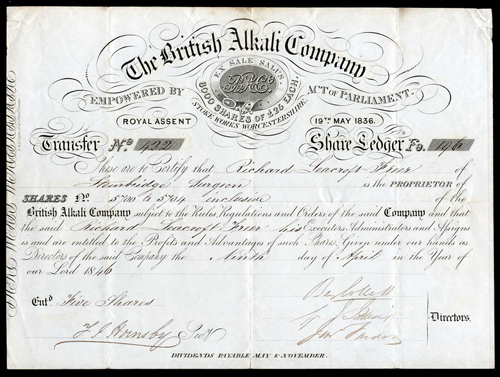 The British Alkali Company
EX SALE SALUS
8000 SHARES OF £25 EACH.
STOKE WORKS WORCESTERSHIRE
EMPOWERED BY ACT OF PARLIAMENT.
ROYAL ASSENT 19TH MAY 1836.
Transfer No 422 Share Ledger Fo. 196
These are to Certify that Richard Seacroft Freer of
Stourbridge Surgeon is the PROPRIETOR of
SHARES No 5700 to 5704 inclusive of the
British Alkali Company subject to the Rules Regulations and Orders of the said Company and that
the said Richard Seacroft Freer his Executors Administrators and Assigns
is and are entitled to the Profits and Advantages of such Share, Given under our hands as
Directors of the said Company the Ninth day of April in the Year of
our Lord 1846
Entd. Five Shares
F J Hornsby Secy
Directors.
DIVIDENDS PAYABLE MAY & NOVEMBER.